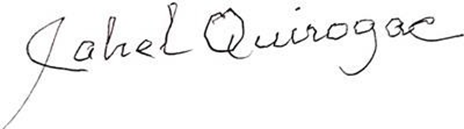 Jahel Quirogac